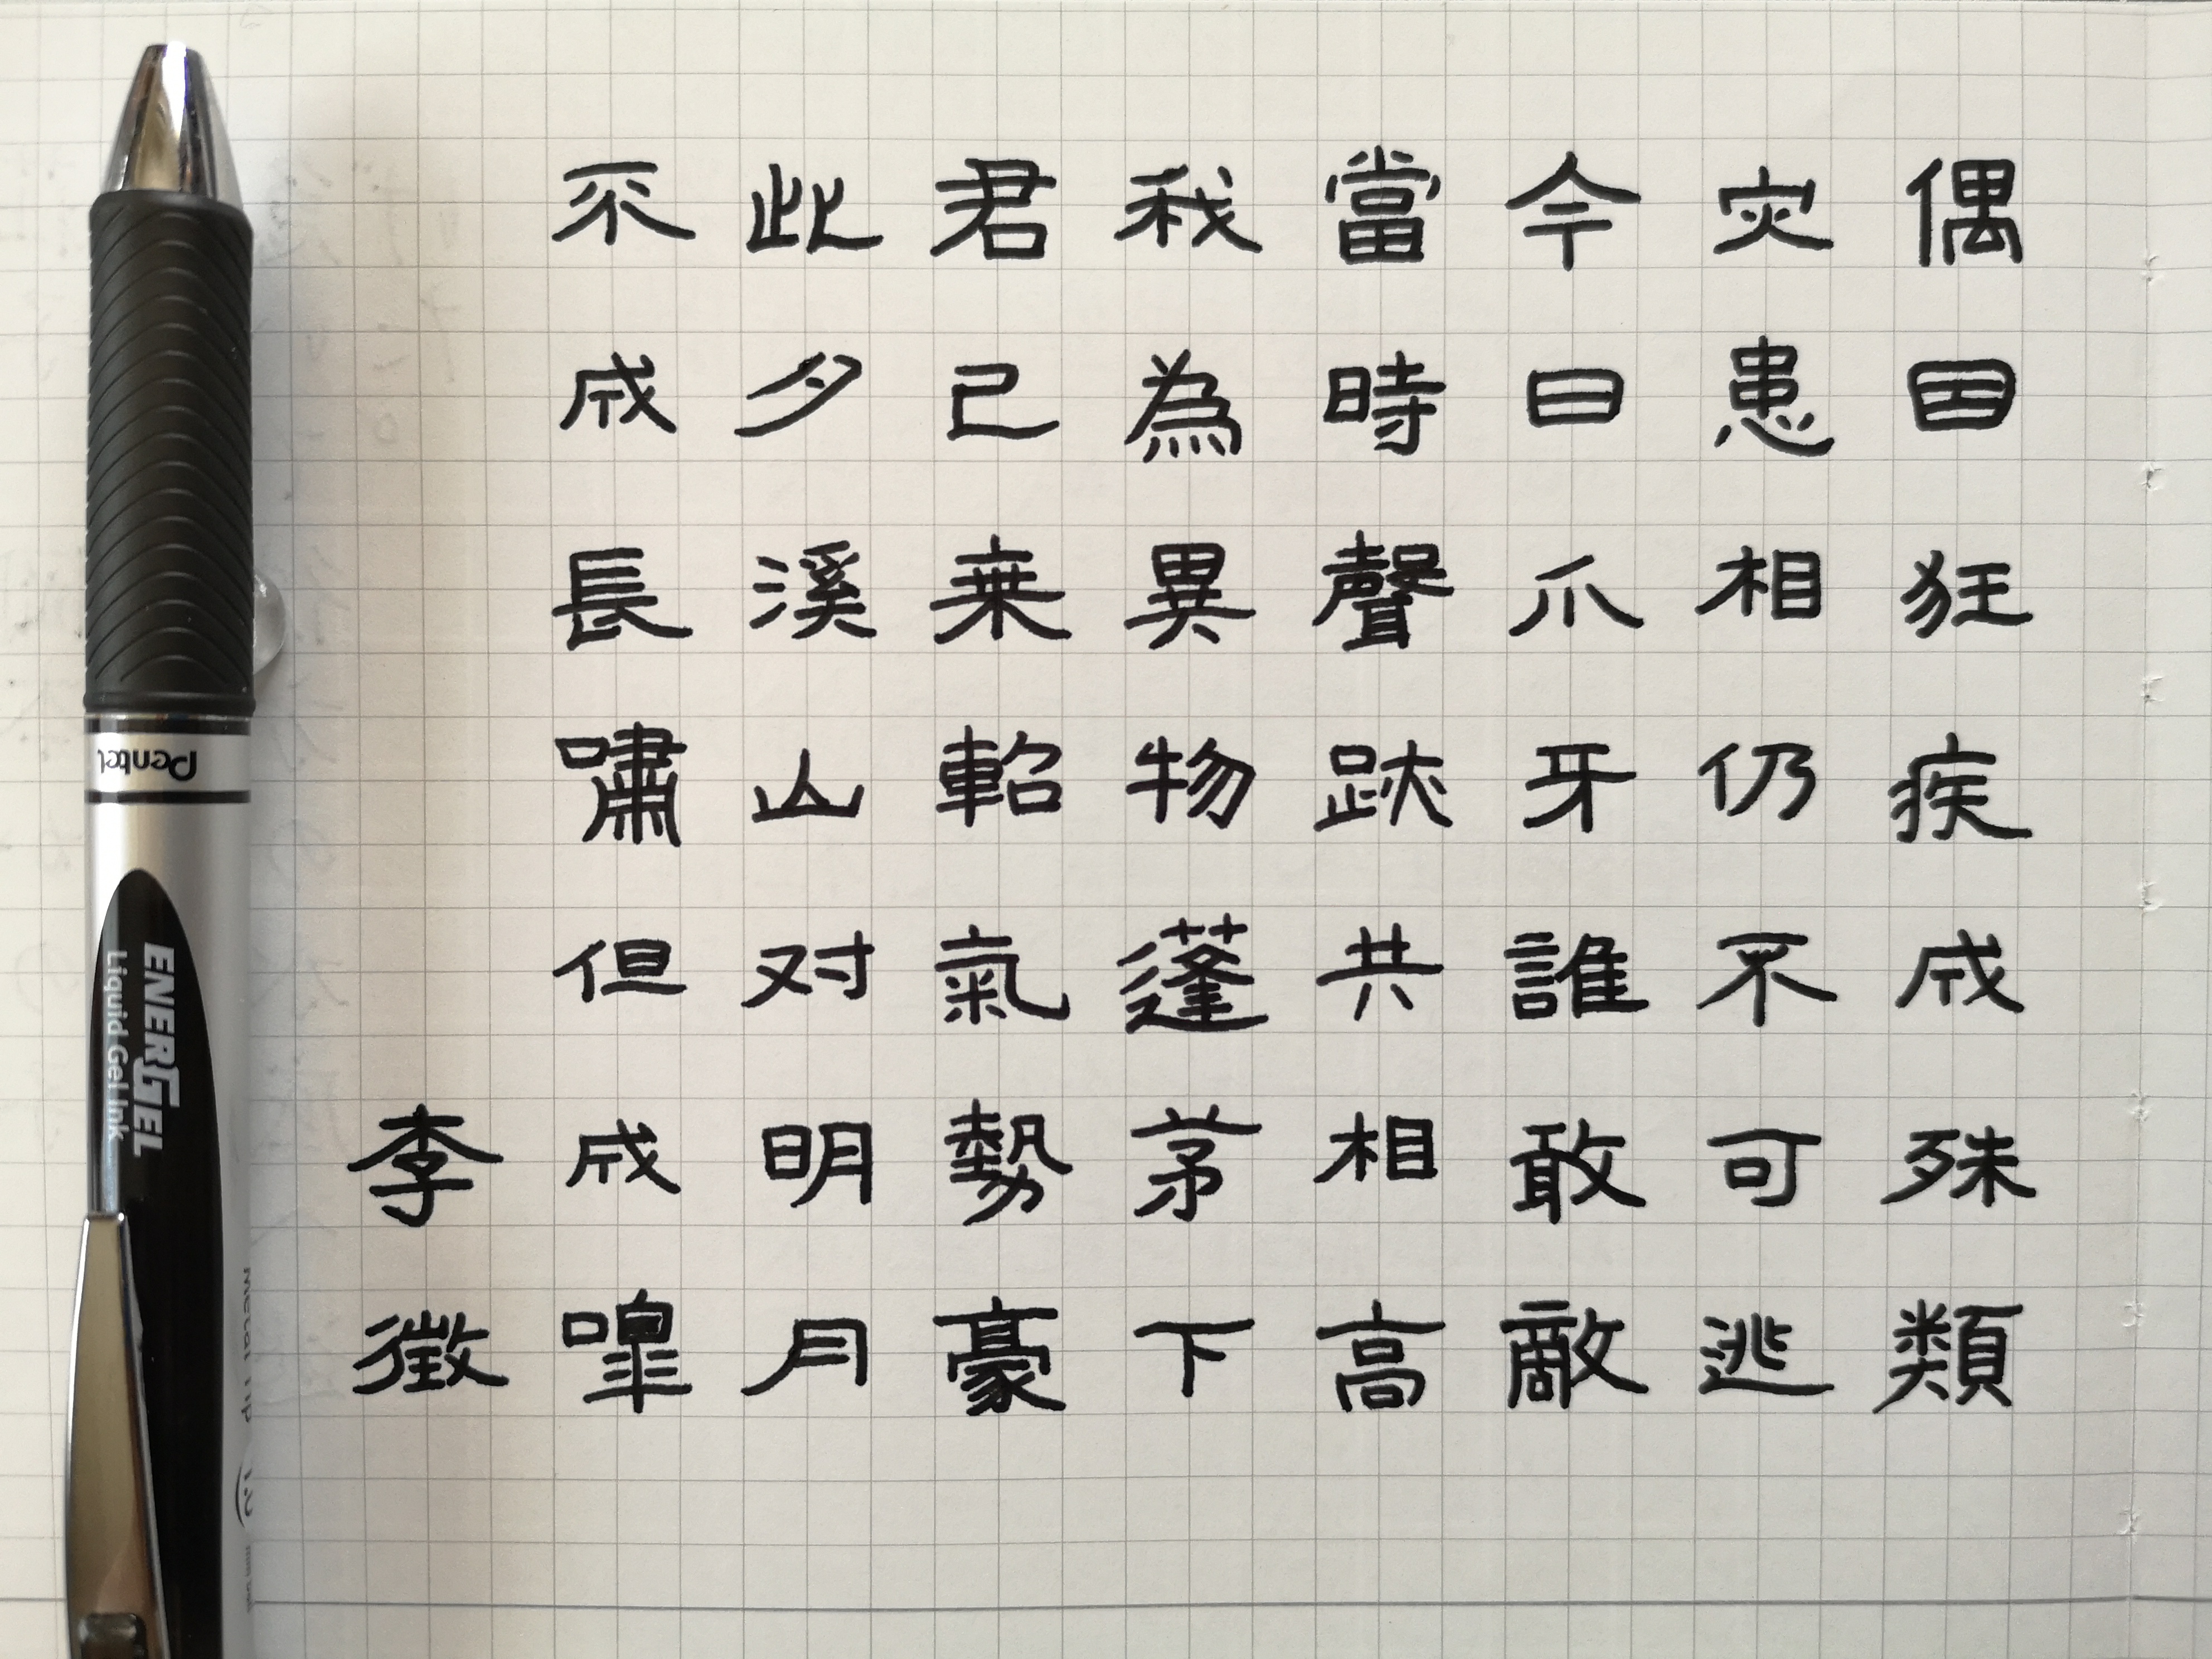 偶因狂疾成殊類
灾患相仍不可逃
今日爪牙誰敢敵
當時聲跡共相高
我為異物蓬茅下
君已乗軺氣勢豪
此夕溪山对明月
不成長嘯但成噑
李徵
Pentel
ENERGEL
Liquid Gel Ink